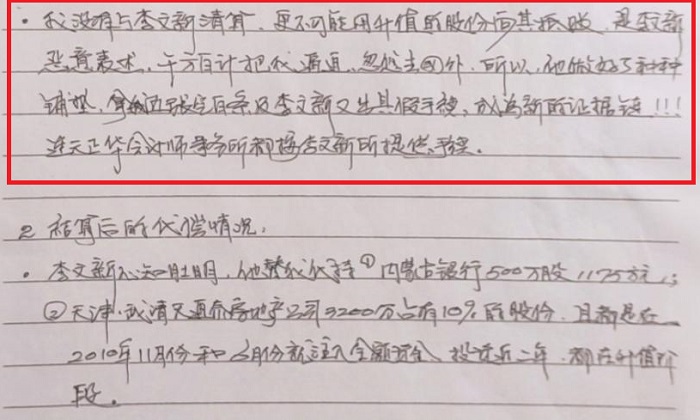 · 我没有与李文新清算，更不可能用升值的股份向其抵账，是李文新
恶意表述，千方百计把我逼迫，忽悠去国外，所以，他做好了种种
铺垫，拿我五张空白条及李文新又出具假手续，成为新的证据链!!!
连天正华会计师事务所都按李文新所提供手续。
2. 结算后的代偿情况，
· 李文新心知肚明，他替我代持①内蒙古银行500万股1175万元；
②天津·武清天通房地产公司3200万占有10%的股份，且都是在
2010年11月份和6月份就注入全额资金，投资近二年，都在升值阶
段。